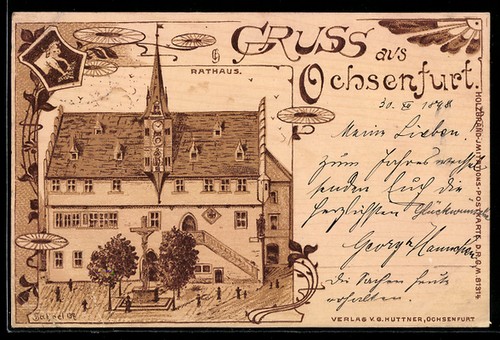 GRUSS aus
Ochsenfurt.
RATHAUS.
30. XII 1898
Meine Lieben!
Zum Jahreswechsel
senden Euch die
herzlichsten Glückwünsche
Georg
die Sachen heute
erhalten.
HOLZBRAND-IMITATIONS-POSTKARTE D.R.G.M. 81914
VERLAG V. G. HUTTNER, OCHSENFURT